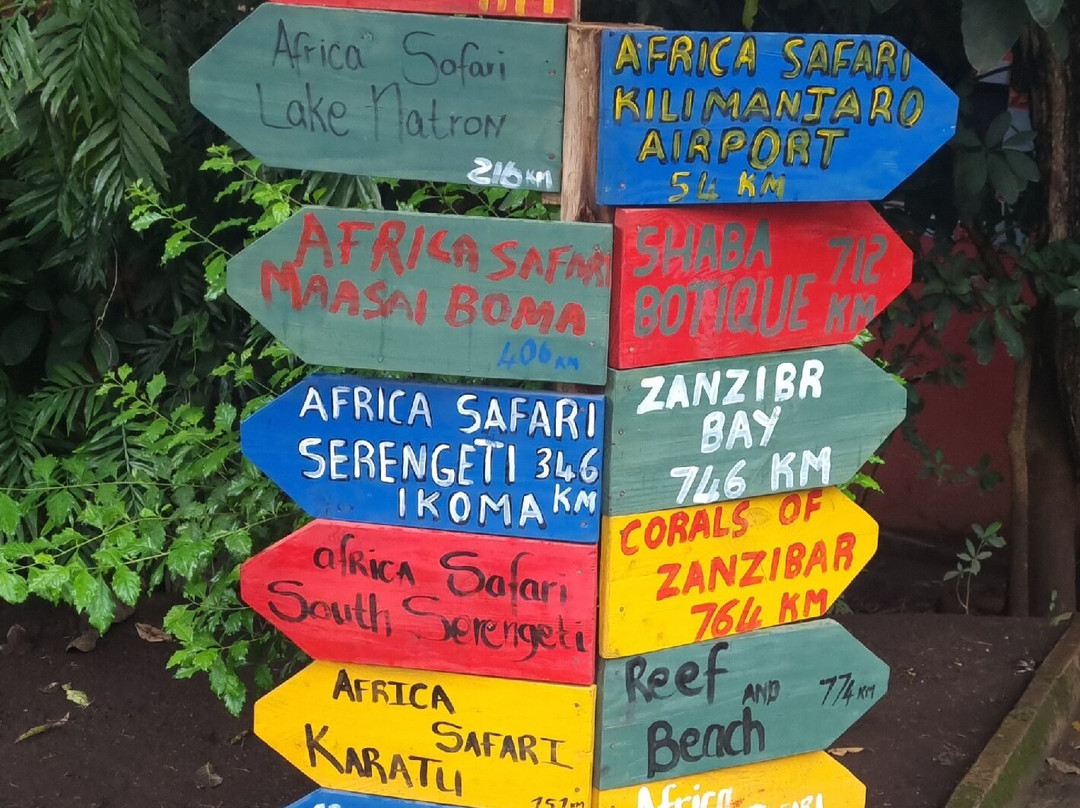 Africa Safari
Lake Natron
216 KM
AFRICA SAFARI
KILIMANJARO
AIRPORT
54 KM
AFRICA SAFARI
MAASAI BOMA
406 KM
SHABA 712
BOTIQUE KM
AFRICA SAFARI
SERENGETI 346
IKOMA KM
ZANZIBR
BAY
746 KM
africa Safari
South Serengeti
CORALS OF
ZANZIBAR
764 KM
AFRICA
SAFARI
KARATU
151 KM
Reef AND 774 KM
Beach
Africa
SAFARI